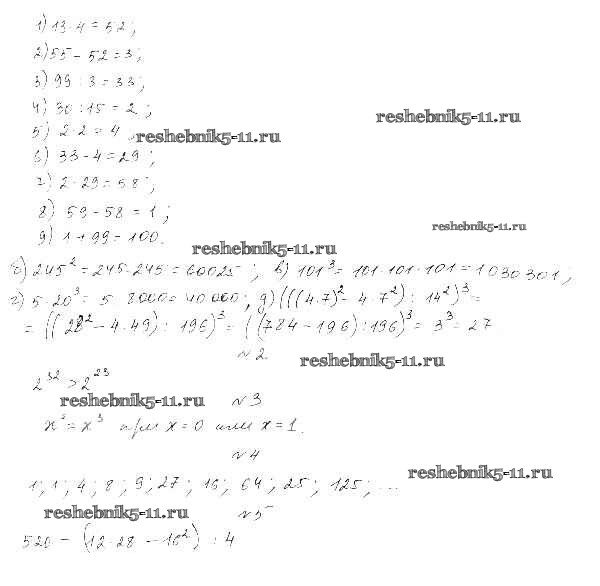 1) 13·4=52;
2) 55-52=3;
3) 99:3=33;
4) 30:15=2;
5) 2·2=4
reshebnik5-11.ru
reshebnik5-11.ru
6) 33-4=29;
7) 2·29=58;
8) 59-58=1;
reshebnik5-11.ru
9) 1+99=100.
reshebnik5-11.ru
б) 245²=245·245=60025; в) 101³=101·101·101=1030301;
г) 5·20³=5·8000=40000; д) (((4·7)²-4·7²):14²)³=
=((28²-4·49):196)³=((784-196):196)³=3³=27
№2.
reshebnik5-11.ru
2³²>2²³
reshebnik5-11.ru
№3
x²=x³ при x=0 или x=1.
№4
reshebnik5-11.ru
1; 1; 4; 8; 9; 27; 16; 64; 25; 125; ...
reshebnik5-11.ru
№5
520-(12·28-16²):4